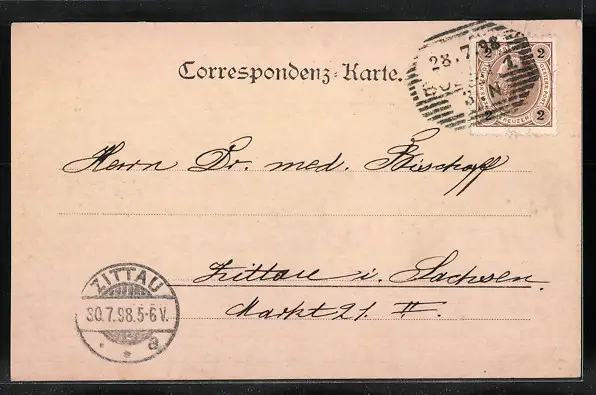 Correspondenz-Karte.
28.7.98
2 2
2 KREUZER 2
Herrn Dr. med. Bischoff
Zittau i. Sachsen.
Markt 21. II.
ZITTAU
30.7.98.5-6V.
* * a